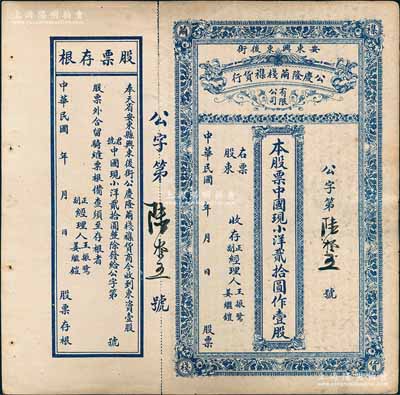 安東興東後街
公慶隆繭棧襍貨行
有限公司
襍
繭
貨
棧
公字第陸 號
本股票中國現小洋貳拾圓作壹股
右票
股東 收存
正經理人王振鷺
副 姜繼鎧
中華民國 年 月 日 股票
公字第陸 號
股票存根
奉天省安東縣興東後街公慶隆繭棧襍貨商今收到東資壹股
君
號
中國現小洋貳拾圓並除發給公字第 號
股票外合留騎縫票根備查須至存根者
正經理人王振鷺
副 姜繼鎧
中華民國 年 月 日 股票存根